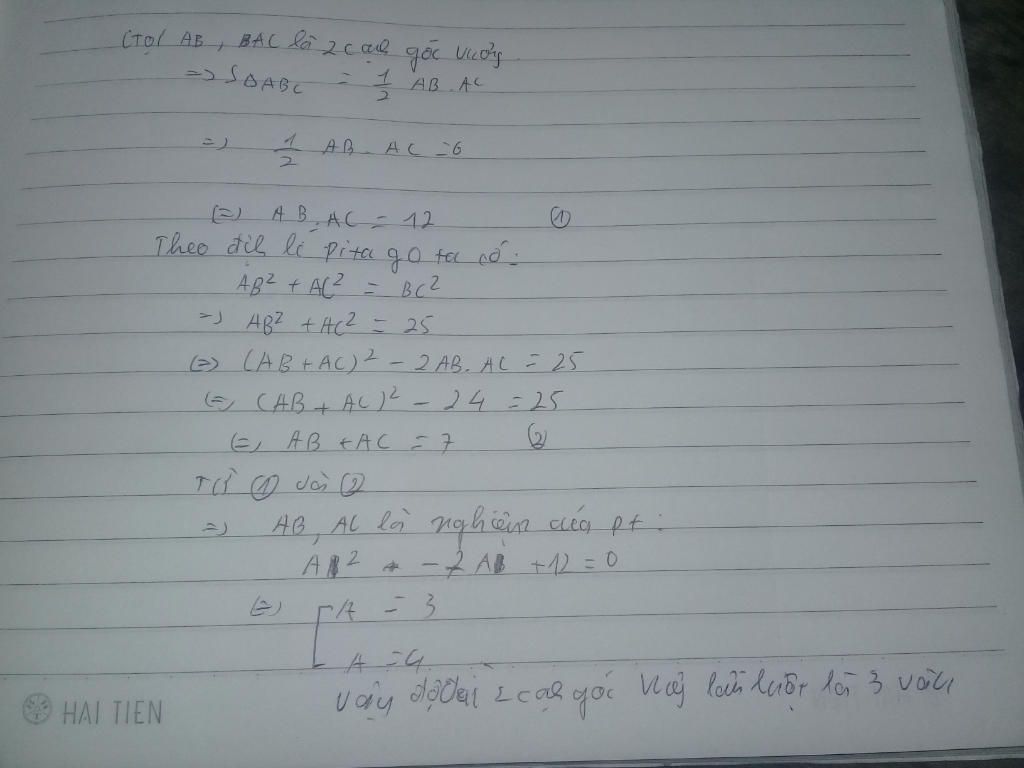 Gọi AB, AC là 2 cạh góc vuông
=> SΔABC = 1/2 AB.AC
=> 1/2 AB.AC = 6
<=> AB.AC = 12 ①
Theo địh lí pitago ta có:
AB² + AC² = BC²
=> AB² + AC² = 25
<=> (AB + AC)² - 2AB.AC = 25
<=> (AB + AC)² - 24 = 25
<=> AB + AC = 7 ②
Từ ① và ②
=> AB, AC là nghiệm của pt:
A² - 7A + 12 = 0
<=> [ A = 3
A = 4
Vậy độ dài 2 cạh góc vuôg lần lượt là 3 và 4
HAI TIEN